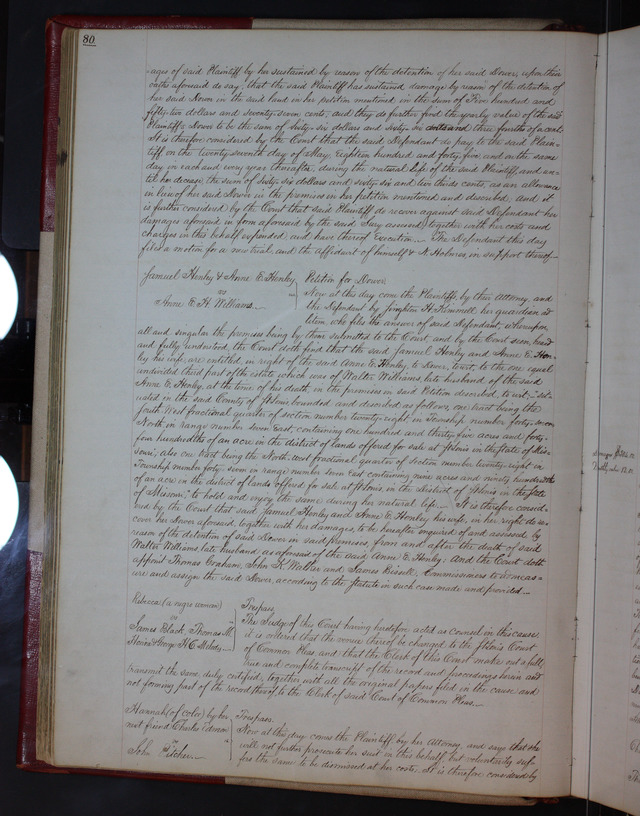 80
-ages of said Plaintiff by her sustained by reason of the detention of her said Dower, upon their
oaths aforesaid do say, that the said Plaintiff has sustained damage by reason of the detention of
her said Dower in the said land in her petition mentioned in the sum of Five hundred and
fifty-two dollars and seventy-seven cents, and they do further find the yearly value of the said
Plaintiff's Dower to be the sum of Sixty six dollars and sixty six cents and three fourths of a cent.
It is therefore considered by the Court that the said Defendant do pay to the said Plain-
tiff, on the twenty seventh day of May, Eighteen hundred and forty five, and on the same
day in each and every year thereafter, during the natural life of the said Plaintiff, and un-
til her decease, the sum of Sixty six dollars and sixty six and two thirds cents, as an allowance
in lieu of her said Dower in the premises in her petition mentioned and described. And it
is further considered by the Court that said Plaintiff do recover against said Defendant her
damages aforesaid in form aforesaid by the said Jury assessed, together with her costs and
charges in this behalf expended, and have thereof Execution. The Defendant this day
files a motion for a new trial, and the affidavit of himself & N. Holmes, in support thereof
Samuel Henley & Anne E. Henley
vs
Anne E. H. Williams
Petition for Dower.
Now at this day come the Plaintiffs, by their Attorney, and
the Defendant by Singleton H. Kimmell her guardian ad
litem, who files the answer of said Defendant, whereupon
all and singular the premises being by them submitted to the Court and by the Court seen, heard
and fully understood, the Court doth find that the said Samuel Henley and Anne E. Hen-
ley his wife, are entitled, in right of the said Anne E. Henley, to Dower, to wit, to the one equal
undivided third part of the estate which was of Walter Williams, late husband of the said
Anne E. Henley, at the time of his death, in the premises in said Petition described, to wit, "Sit-
uated in the said County of St Louis bounded and described as follows, one tract being the
South West fractional quarter of section number twenty-eight, in Township number forty-seven
North, in range number seven East, containing one hundred and thirty five acres and forty-
four hundredths of an acre in the district of lands offered for sale at St Louis in the State of Mis-
souri, also one tract being the North west fractional quarter of section number twenty-eight in
Township number forty-seven in range number seven East containing nine acres and ninety hundredths
of an acre in the district of lands offered for sale at St Louis, in the District of St Louis in the State
of Missouri," to hold and enjoy the same during her natural life. It is therefore consid-
ered by the Court that said Samuel Henley and Anne E. Henley his wife, in her right do re-
cover her Dower aforesaid, together with her damages, to be hereafter enquired of and assessed by
reason of the detention of said Dower in said premises from and after the death of said
Walter Williams late husband as aforesaid of the said Anne E. Henley. And the Court doth
appoint Thomas Graham, John K. Walker and James Bissell, Commissioners to admeas-
ure and assign the said Dower, according to the Statute in such case made and provided.
Rebecca (a negro woman)
vs
James Black, Thomas M.
George H. C. Melody
Trespass.
The Judge of this Court having heretofore acted as counsel in this cause
it is ordered that the venue thereof be changed to the St Louis Court
of Common Pleas, and that the Clerk of this Court make out a full,
true and complete transcript of the record and proceedings herein and
transmit the same duly certified, together with all the original papers filed in the cause and
not forming part of the record thereof, to the Clerk of said Court of Common Pleas.
Hannah (of color) by her
next friend Charles
vs
John Pitcher
Trespass.
Now at this day comes the Plaintiff by her Attorney, and says that she
will not further prosecute her suit in this behalf but voluntarily suf-
fers the same to be dismissed at her costs. It is therefore considered by